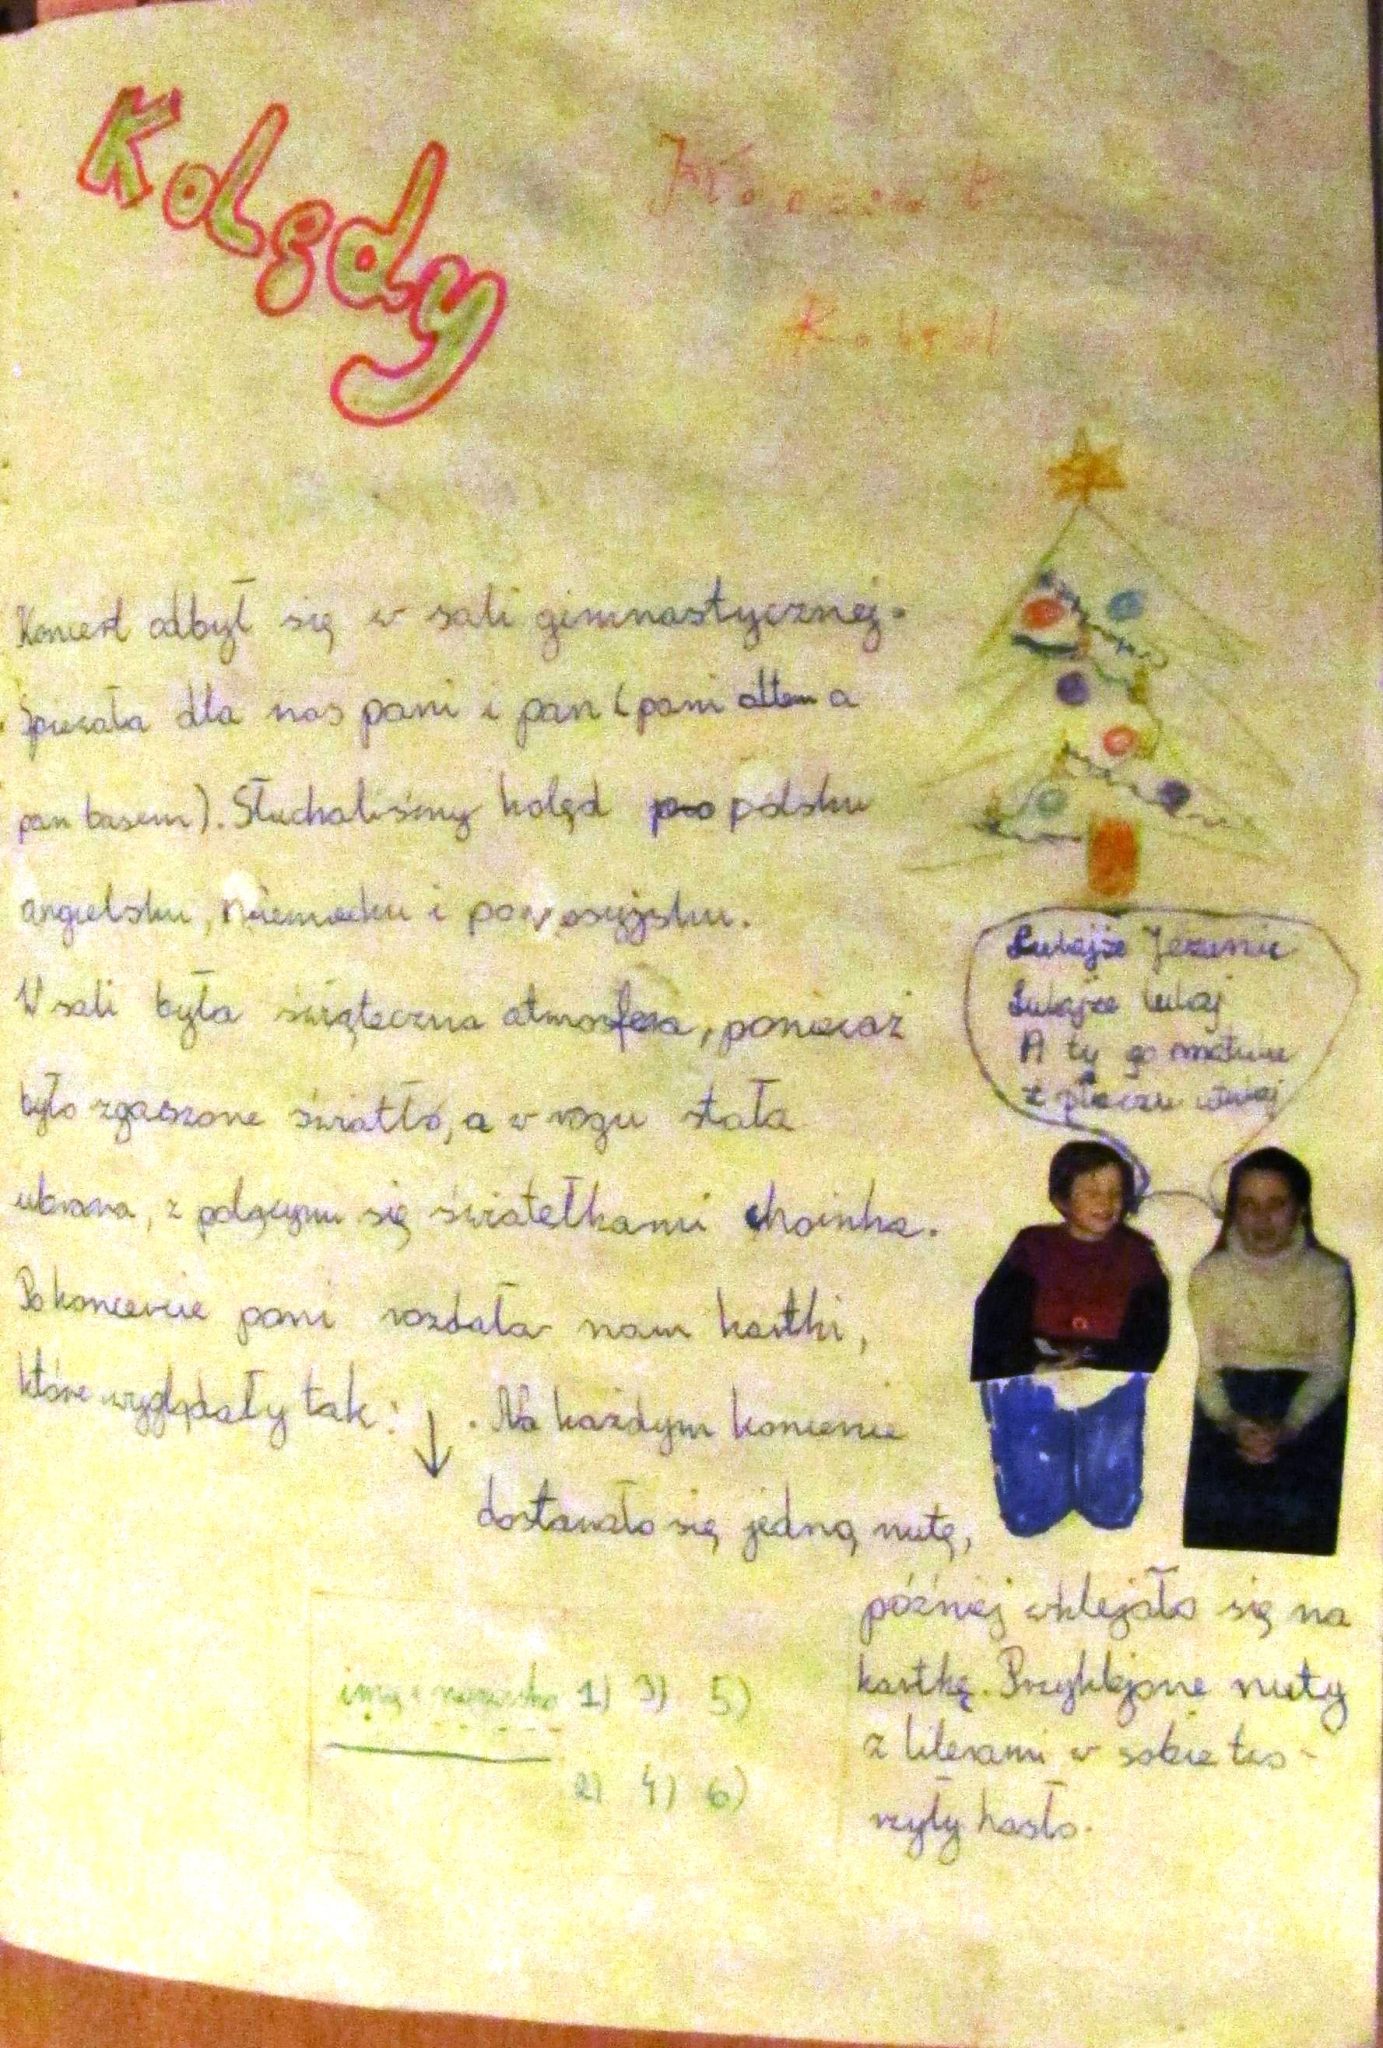 Kolędy
Koncert odbył się w sali gimnastycznej.
Śpiewała dla nas pani i pan (pani altem a
pan basem). Słuchaliśmy kolęd po polsku
angielsku, niemiecku i po rosyjsku.
W sali była świąteczna atmosfera, ponieważ
było zgaszone światło, a w rogu stała
ubrana, z palącymi się światełkami choinka.
Po koncercie pani rozdała nam kartki,
które wyglądały tak: ↓ . Na każdym koncercie
dostawało się jedną nutę,
później wklejało się na
kartkę. Przyklejone nuty
z literami w sobie two-
rzyły hasło.
Lulajże Jezuniu
Lulajże lulaj
A ty go matulu
z płaczu utulaj
imię i nazwisko 1) 3) 5)
2) 4) 6)